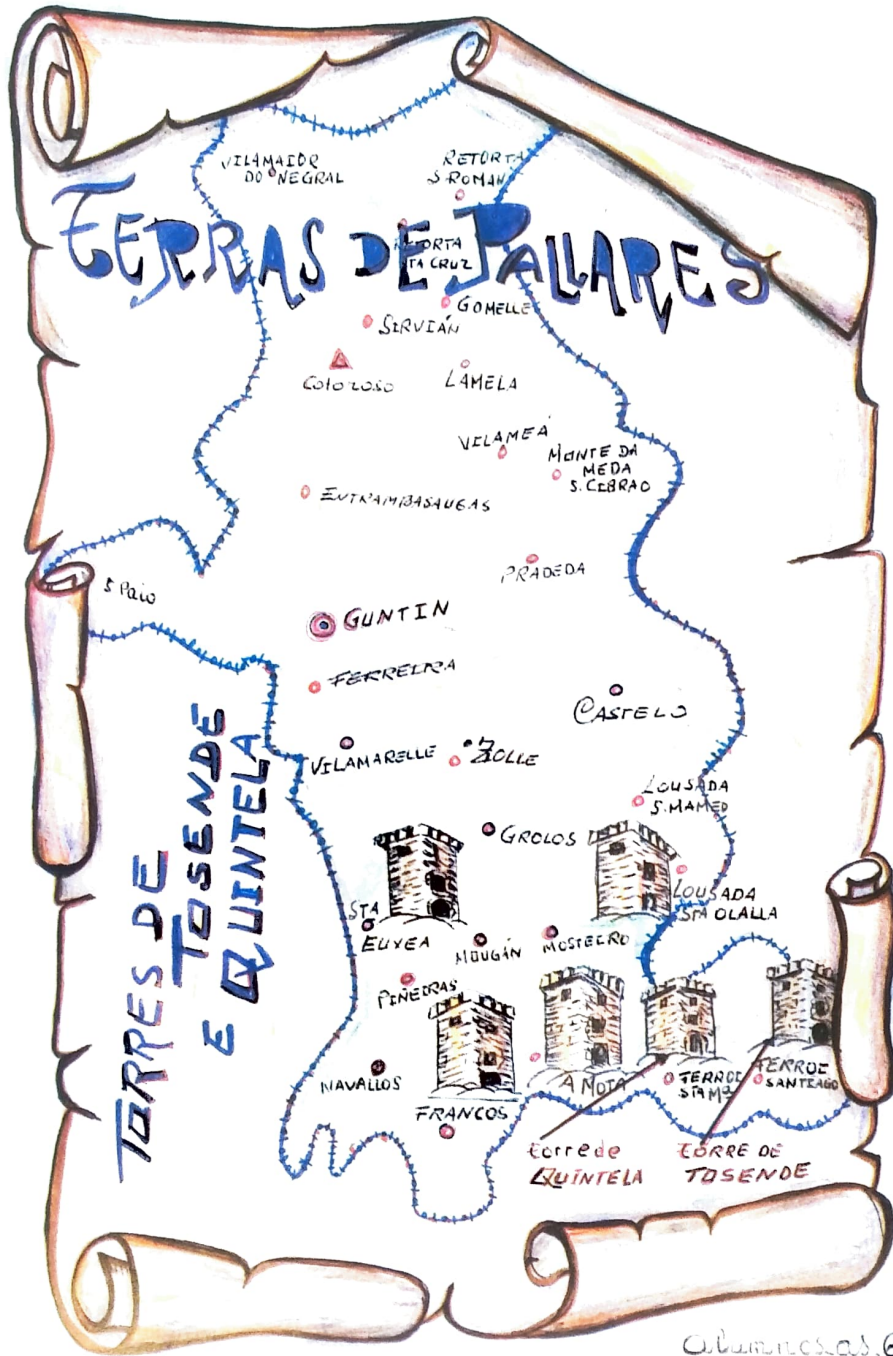 VILAMAIOR
DO NEGRAL
RETORTA
S.ROMAN
TERRAS DE PALLARES
RETORTA
STA CRUZ
GOMELLE
SIRVIÁN
Cotoroso
LAMELA
VILAMEÁ
MONTE DA
MEDA
S. CIBRAO
ENTRAMBASAUGAS
PRADEDA
S Paio
GUNTIN
FERREIRA
CASTELO
VILAMARELLE
ZOLLE
LOUSADA
S.MAMED
GROLOS
LOUSADA
STA OLALLA
STA
EUXEA
MOUGÁN
MOSTEIRO
PIÑEIRAS
NAVALLOS
FRANCOS
A MOTA
FERROI
STA Mª
FERROI
SANTIAGO
torre de
QUINTELA
TORRE DE
TOSENDE
TORRES DE
TOSENDE
E QUINTELA